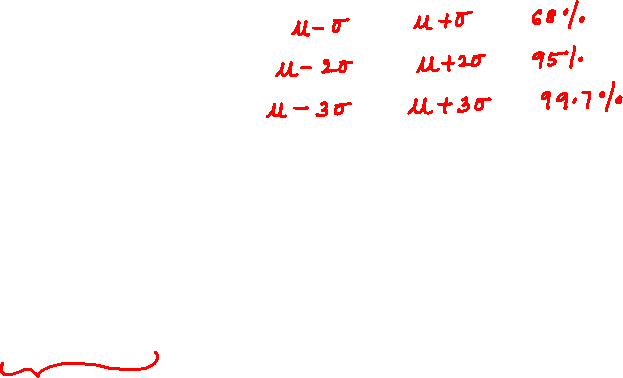 μ-σ μ+σ 68%
μ-2σ μ+2σ 95%
μ-3σ μ+3σ 99.7%